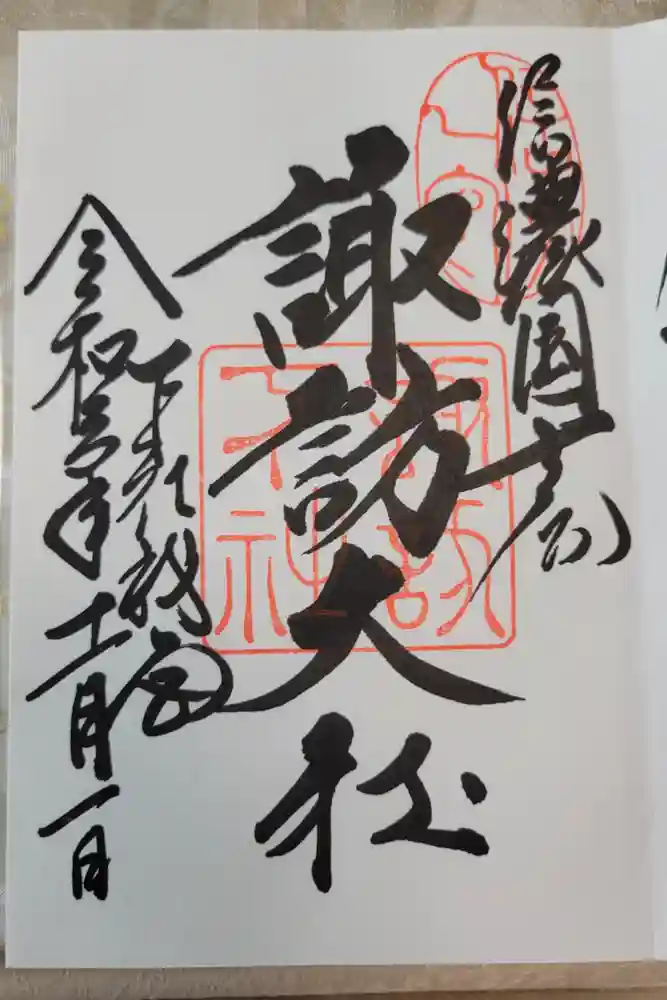 信濃国一之宮
諏訪大社
下社秋宮
令和年十一月一日